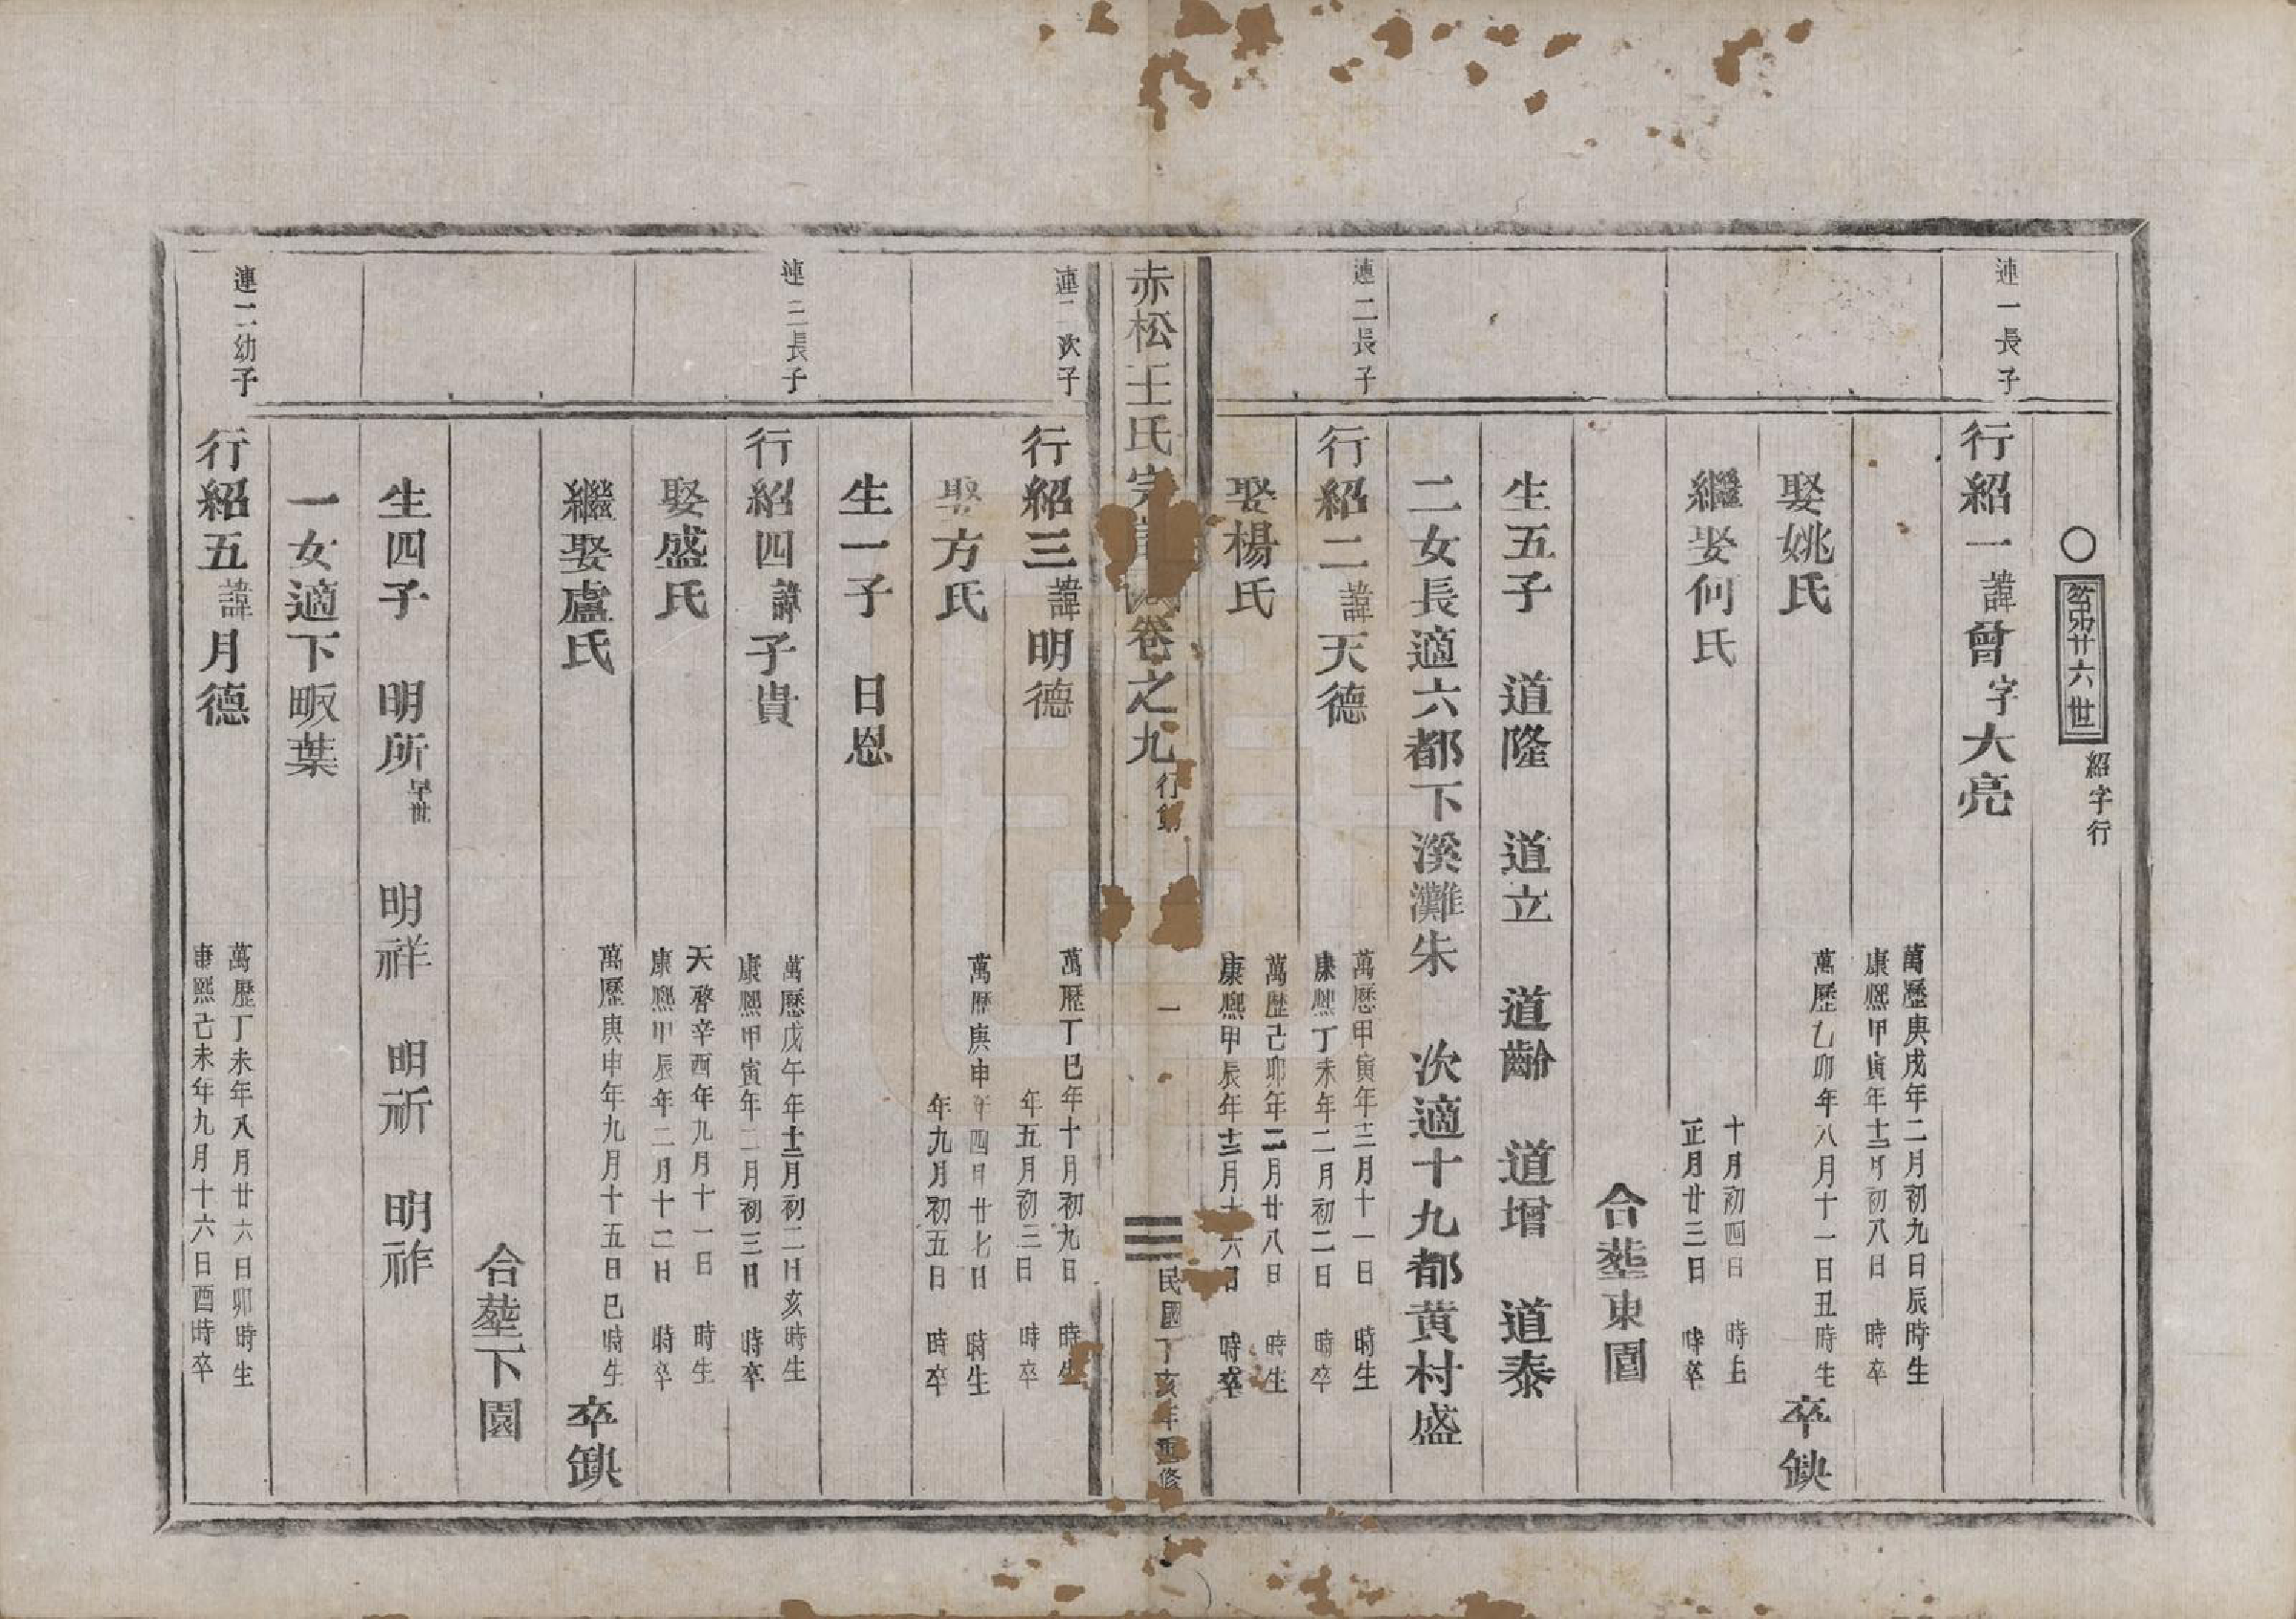 ○
廿六世
紹字行
連一長子
行紹一諱曾字大亮
萬歷庚戌年二月初九日辰時生
康熙甲寅年十二月初八日 時卒
娶姚氏
萬歷乙卯年八月十一日丑時生
卒缺
繼娶何氏
十月初四日 時生
正月廿三日 時卒
合塟東園
生五子 道隆 道立 道齡 道增 道泰
二女長適六都下溪灘朱 次適十九都黄村盛
連二長子
行紹二諱天德
萬歷甲寅年三月十一日 時生
康熙丁未年二月初二日 時卒
娶楊氏
萬歷己卯年二月廿八日 時生
康熙甲辰年十二月十六日 時卒
赤松王氏宗譜 卷之九 行第 一 民國丁亥年重修
連二次子
行紹三諱明德
萬歷丁巳年十月初九日 時生
年五月初三日 時卒
娶方氏
萬歷庚申年四月廿七日 時生
年九月初五日 時卒
生一子 日恩
連三長子
行紹四諱子貴
萬歷戊午年十二月初二日亥時生
康熙甲寅年二月初三日 時卒
娶盛氏
天啓辛酉年九月十一日 時生
康熙甲辰年二月十二日 時卒
繼娶盧氏
萬歷庚申年九月十五日巳時生
卒缺
合塟下園
生四子 明所早世 明祥 明祈 明祚
一女適下畈葉
連二幼子
行紹五諱月德
萬歷丁未年八月廿六日卯時生
康熙己未年九月十六日酉時卒